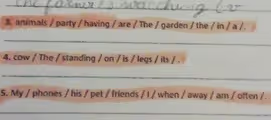 the farmer is watching
3. animals / party / having / are / The / garden / the / in / a /.
4. cow / The / standing / on / is / legs / its / .
5. My / phones / his / pet / friends / I / when / away / am / often /